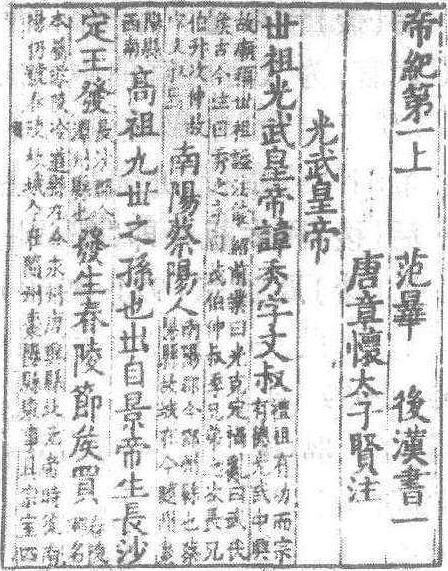 帝紀第一上 范曄 後漢書一
唐章懷太子賢注
光武皇帝
丗祖光武皇帝諱秀字文叔 禮祖有功而宗
有德光武中興
故廟稱丗祖謚法能紹前業曰光克定禍亂曰武伏
侯古今注曰秀之字曰茂伯仲叔季兄弟之次長兄
伯升次仲故
字文叔焉
南陽蔡陽人 南陽郡今鄧州縣也蔡
陽縣故城在今隨州棗
陽縣
西南
高祖九丗之孫也出自景帝生長沙
定王發 長沙郡今
潭州縣也
發生舂陵節矦買 舂陵
鄉名
本屬零陵泠道縣在今永州唐興縣北元帝時徙南
陽仍號舂陵故城今在隨州棗陽縣東事具宗室四